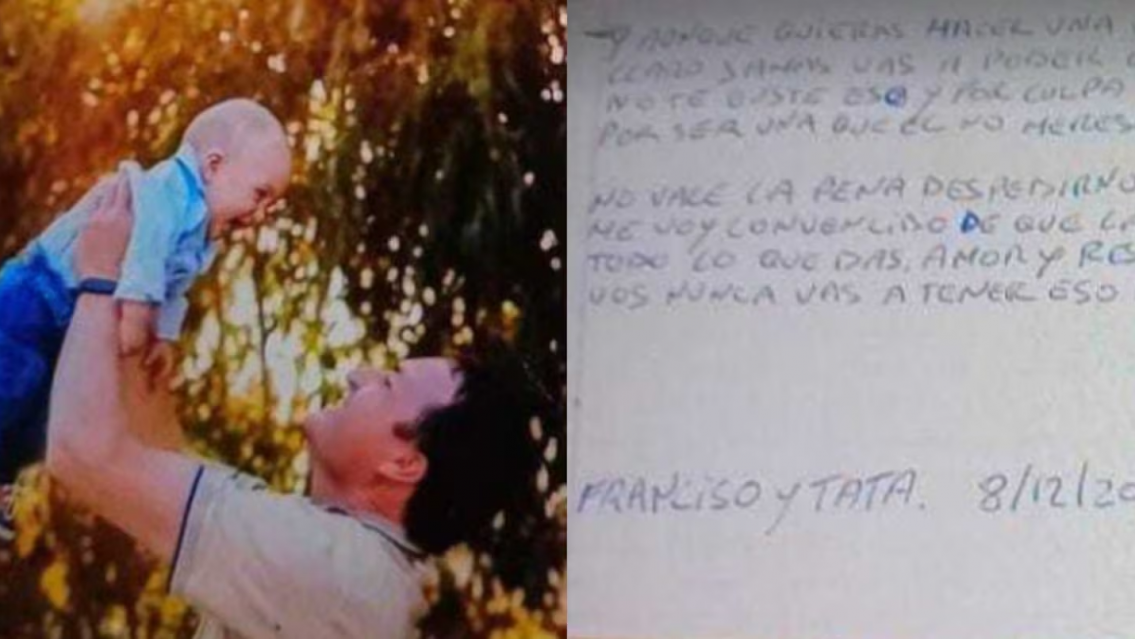 Y AUNQUE QUIERAS HACER UNA
CLARO JAMAS VAS A PODER
NO TE GUSTE ESO Y POR CULPA
POR SER UNA QUE EL NO MERES
NO VALE LA PENA DESPEDIRNO
ME VOY CONVENCIDO DE QUE LA
TODO LO QUE DAS, AMOR Y RES
VOS NUNCA VAS A TENER ESO
FRANCISO Y TATA. 8/12/20